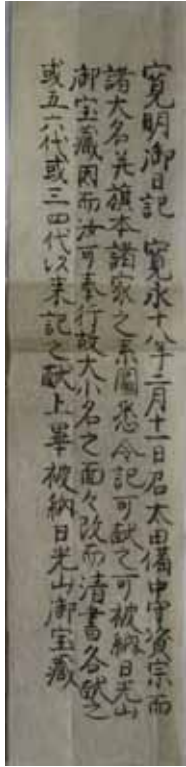 寛明御日記 寛永十八年二月十一日召太田備中守資宗而
諸大名并旗本諸家之系圖悉令記可献之可被納日光山
御宝蔵因而汝可奉行故大小名之面々改而清書各献之
或五六代或三四代以来記之献上畢被納日光山御宝蔵